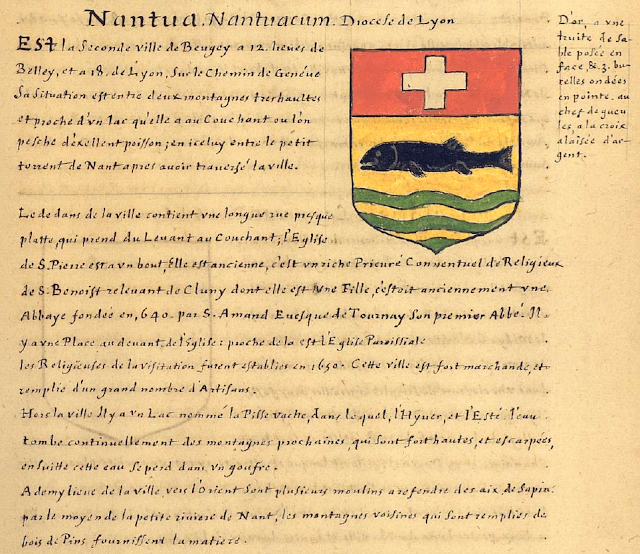 Nantua. Nantuacum. Diocese de Lyon
Est la Seconde ville de Beugey a 12. lieues de
Belley, et a 18. de Lyon, Sur le Chemin de Genéue
Sa Situation est entre deux montagnes tres haultes
et proche d'vn lac qu'elle a au Couchant ou l'on
pesche d'éxellent poisson; en iceluy entre le petit
torrent de Nant apres auoir traversé la ville.
Le dedans de la ville contient vne longue rue presque
platte, qui prend du Leuant au Couchant; l'Eglise
de S. Pierre est a vn bout, Elle est ancienne, c'est vn riche Prieuré Conventuel de Religieux
de S. Benoist relevant de Cluny dont elle est vne Fille, c'estoit anciennement vne
Abbaye fondée en, 640. par S. Amand Euesque de Tournay Son premier Abbé. Il
y a vne Place au deuant de l'Eglise: proche de la est l'Eglise Paroissiale
les Religieuses de la visitation furent establies en 1650. Cette ville est fort marchande, et
remplie d'un grand nombre d'Artisans.
Hors la ville Il y a vn Lac nommé la Pisse vache, dans lequel, l'Hyuer, et l'Esté l'eau
tombe continuellement des montagnes prochaines, qui sont fort hautes, et escarpées,
ensuitte cette eau se perd dans vn gouffre.
A demy lieue de la ville, vers l'Orient sont plusieurs moulins a refendre des aix de Sapin
par le moyen de la petite riviere de Nant, les montagnes voisines qui sont remplies de
bois de Pins fournissent la matiere.
D'or, a vne
truite de Sa-
ble posée en
face, & 3. bu-
relles ondées
en pointe. au
chef de gueu-
les, a la croix
alaisée d'ar-
gent.